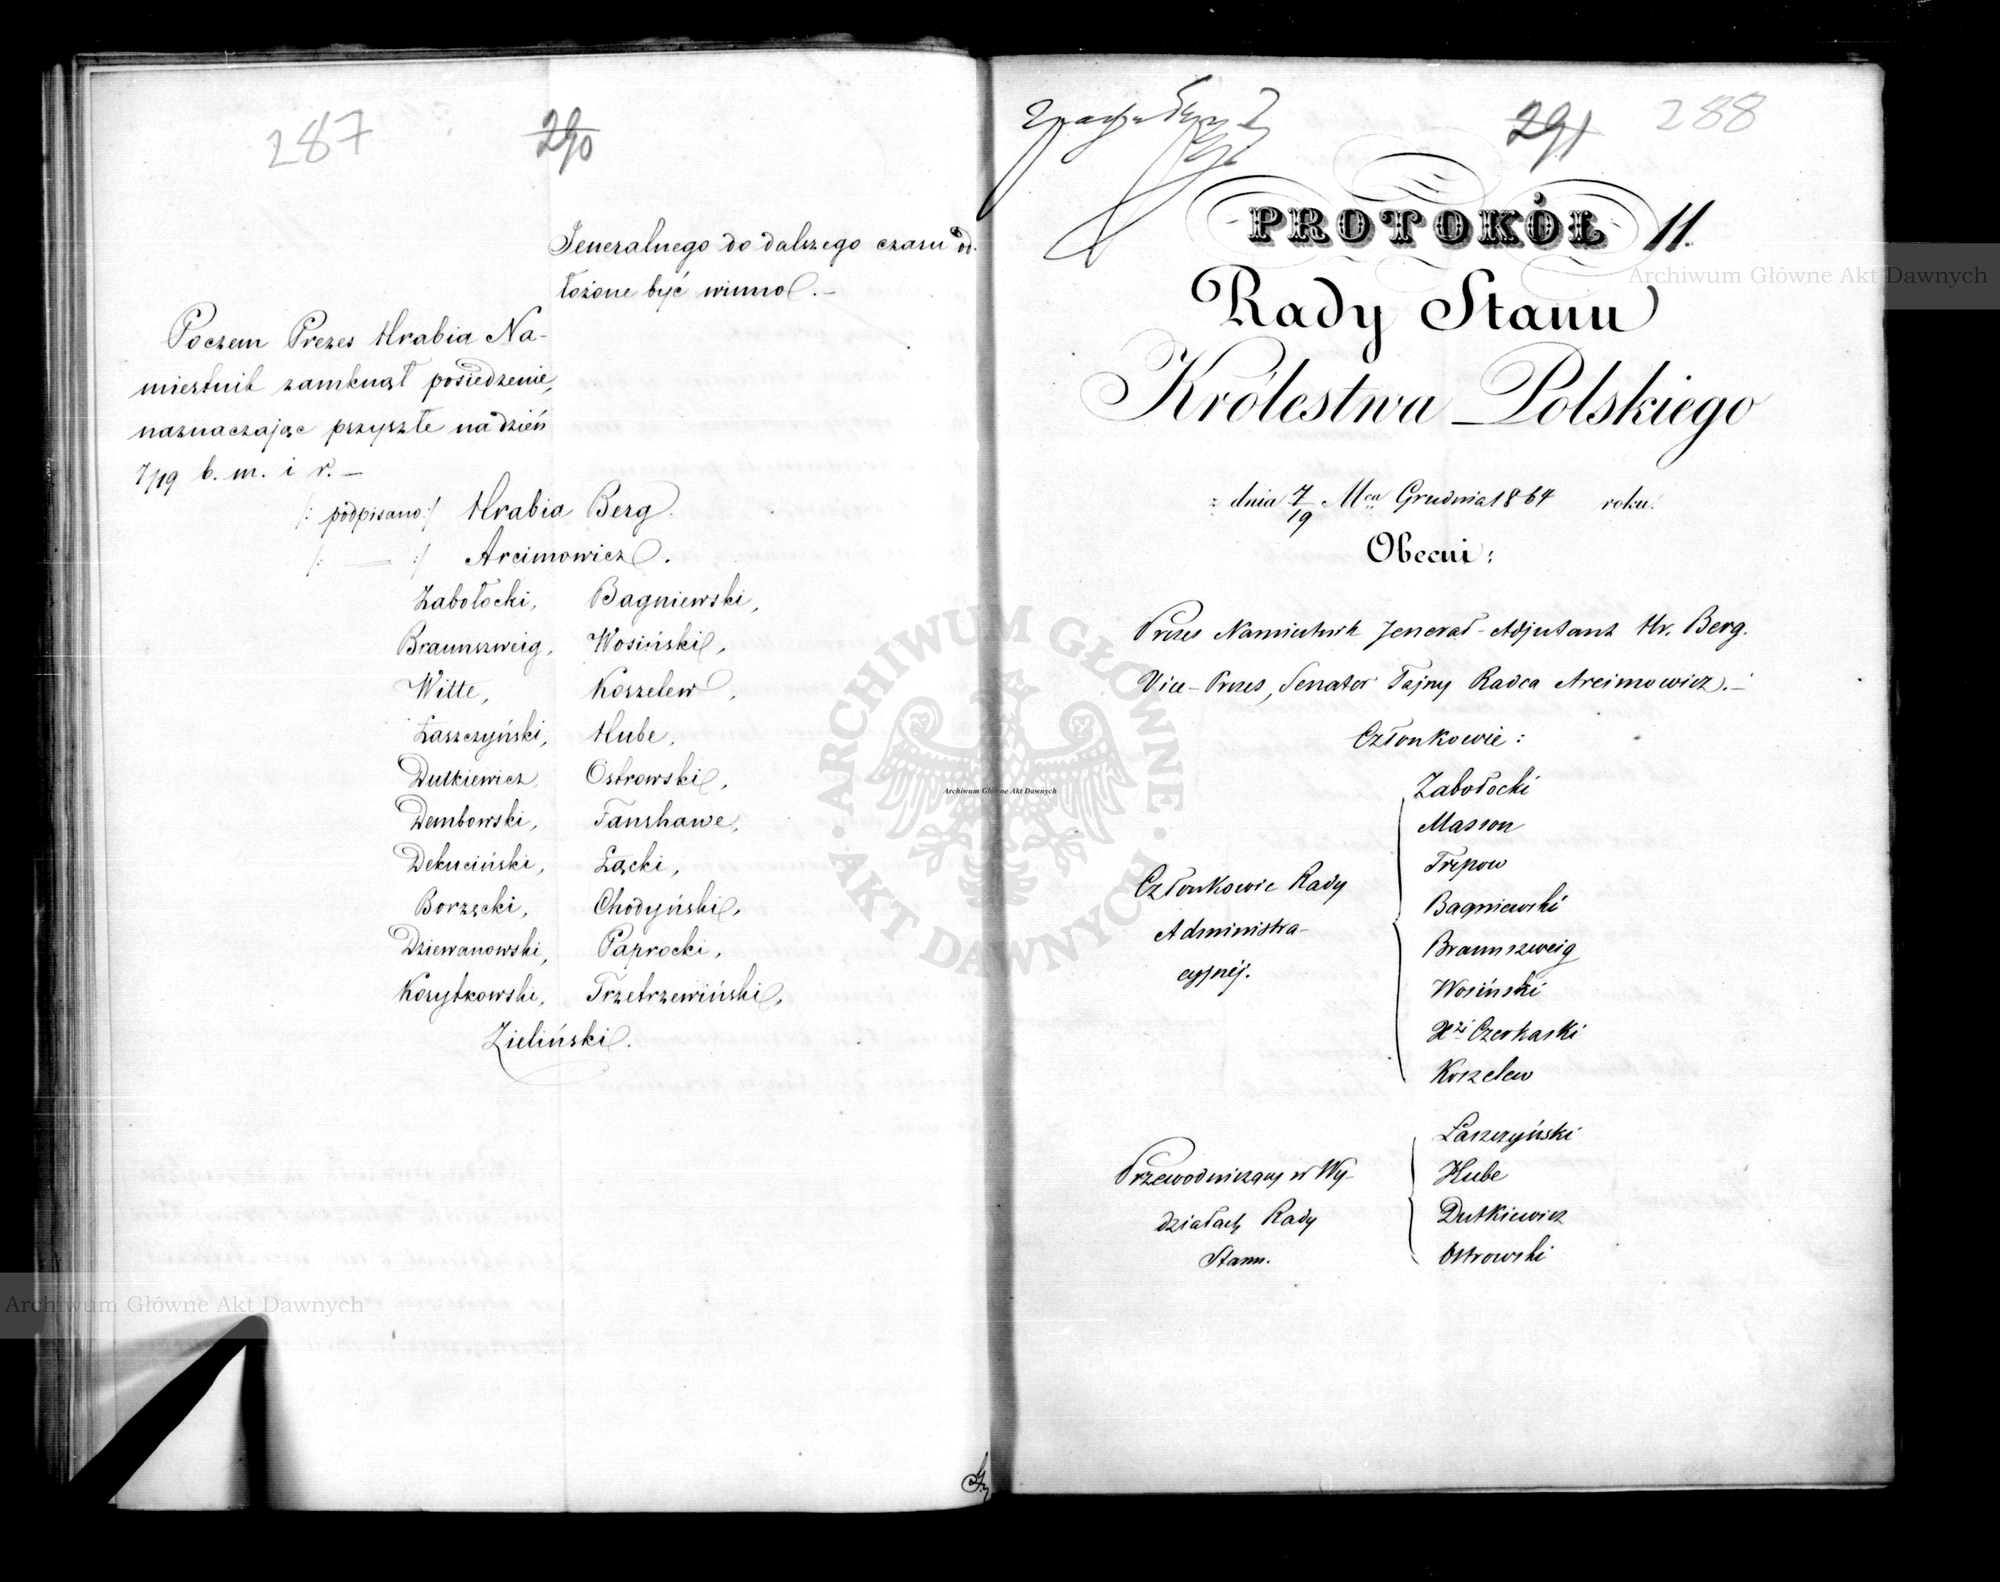 287
290
Jeneralnego do dalszego czasu od-
łożone być winno.—
Poczem Prezes Hrabia Na-
miestnik zamknął posiedzenie,
naznaczając przyszłe na dzień
7/19 b. m. i r.—
/: podpisano :/ Hrabia Berg.
/: — :/ Arcimowicz.
Zabołocki, Bagniewski,
Braunszweig, Wosiński,
Witte, Koszelew,
Łaszczyński, Hube,
Dutkiewicz, Ostrowski,
Dembowski, Fanshawe,
Dekuciński, Łącki,
Borzęcki, Chodyński,
Dziewanowski, Paprocki,
Korytkowski, Trzetrzewiński,
Zieliński.
291
288
PROTOKÓŁ 11.
Rady Stanu
Królestwa Polskiego
z dnia 7/19 Mca Grudnia 1864 roku.
Obecni:
Prezes Namiestnik Jenerał-Adjutant Hr. Berg.
Vice-Prezes, Senator Tajny Radca Arcimowicz.—
Członkowie:
Członkowie Rady
Administra-
cyjnej.
Zabołocki
Masson
Trepow
Bagniewski
Braunszweig
Wosiński
Xże Czerkaski
Koszelew
Przewodniczący w Wy-
działach Rady
Stanu.
Łaszczyński
Hube
Dutkiewicz
Ostrowski
Archiwum Główne Akt Dawnych
Archiwum Główne Akt Dawnych
Archiwum Główne Akt Dawnych
ARCHIWUM GŁÓWNE · AKT DAWNYCH ·